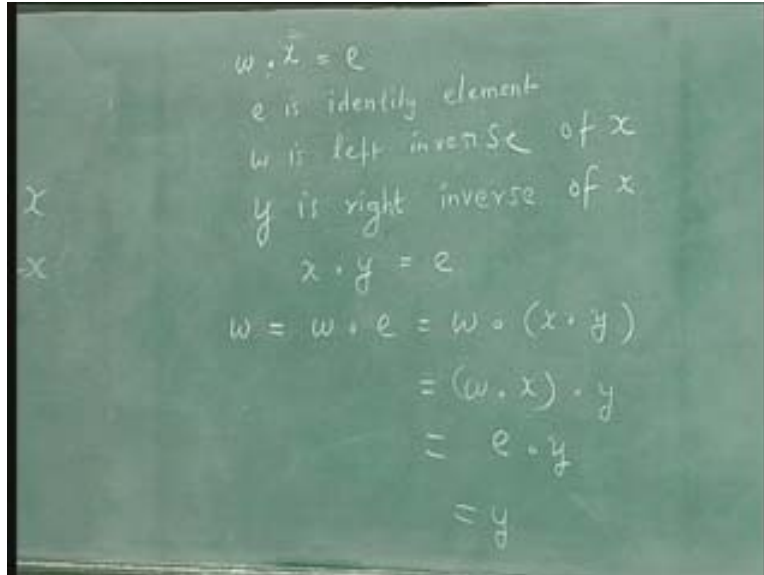 w . x = e
e is identity element
w is left inverse of x
x
y is right inverse of x
-x
x . y = e
w = w . e = w . (x . y)
= (w . x) . y
= e . y
= y